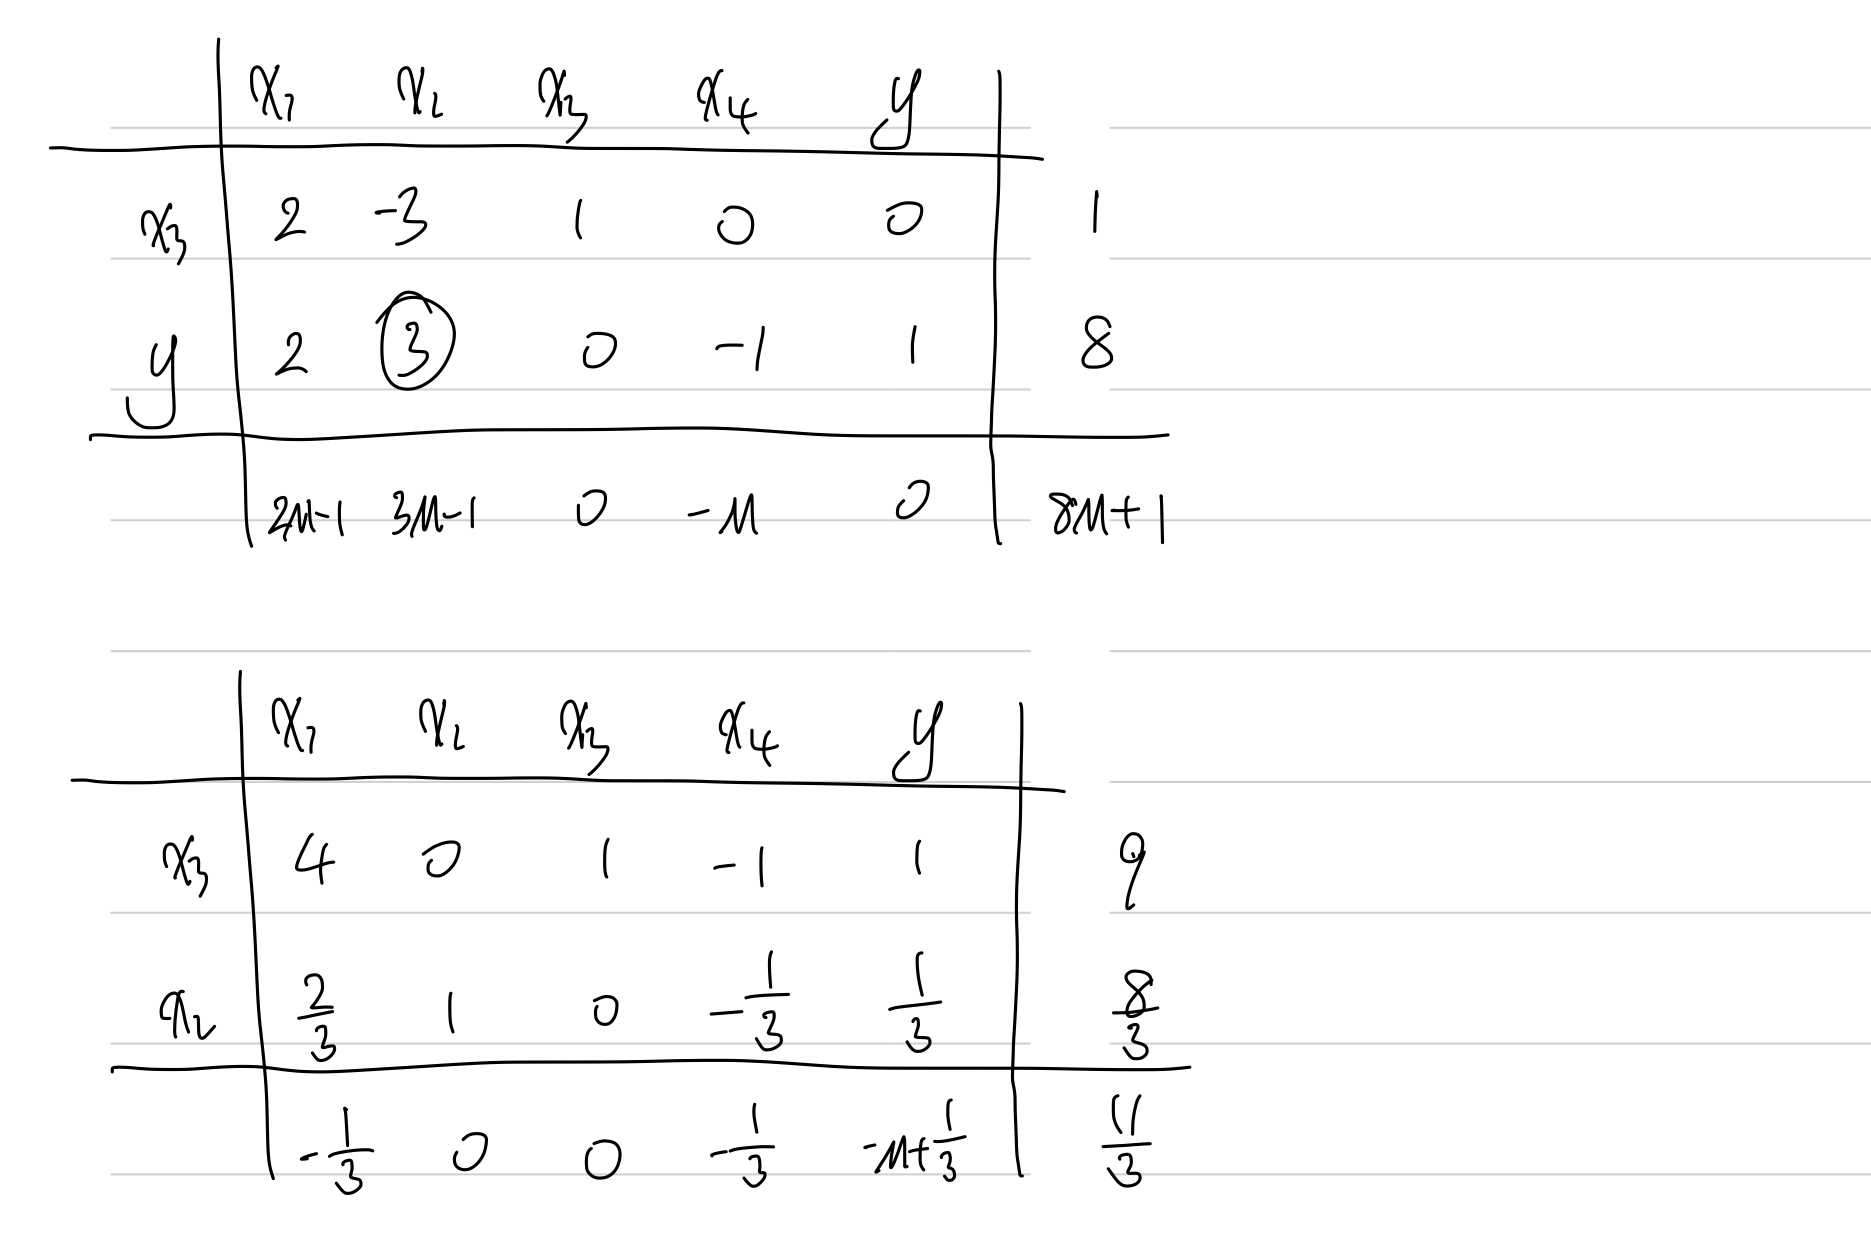 x₁ x₂ x₃ x₄ y
x₃ 2 -3 1 0 0 1
y 2 3 0 -1 1 8
2M-1 3M-1 0 -M 0 8M+1
x₁ x₂ x₃ x₄ y
x₃ 4 0 1 -1 1 9
x₂ 2/3 1 0 -1/3 1/3 8/3
-1/3 0 0 -1/3 -M+1/3 11/3